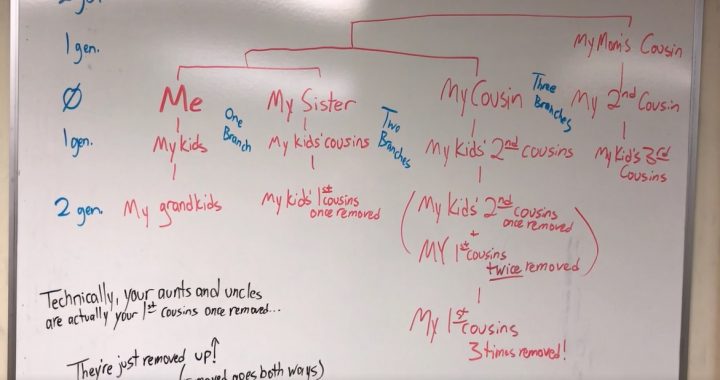 2 gen.
1 gen.
My Mom's Cousin
Ø
Me
My Sister
My Cousin
My 2nd Cousin
One
Branch
Two
Branches
Three
Branches
1 gen.
My kids
My kids' cousins
My kids' 2nd cousins
My kid's 3rd
Cousins
2 gen.
My grandkids
My kids' 1st cousins
once removed
(My kids' 2nd cousins
once removed
+
MY 1st cousins
twice removed)
My 1st cousins
3 times removed!
Technically, your aunts and uncles
are actually your 1st cousins once removed...
They're just removed up!
goes both ways)